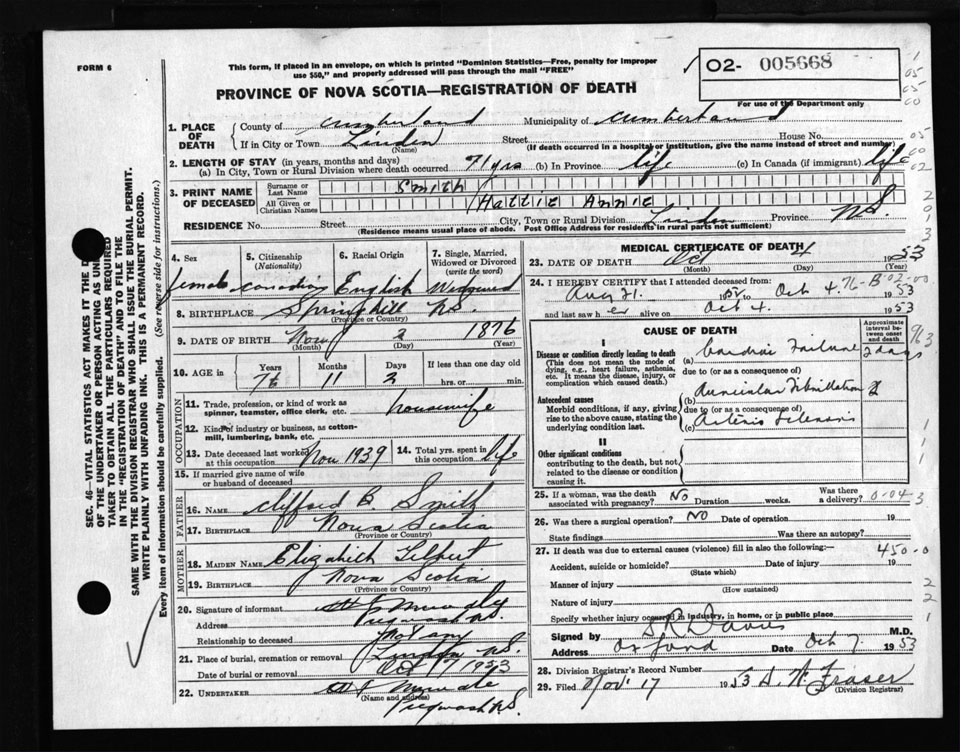 FORM 6
This form, if placed in an envelope, on which is printed "Dominion Statistics—Free, penalty for improper
use $50," and properly addressed will pass through the mail "FREE"
✓ O2- 005668
For use of the Department only
PROVINCE OF NOVA SCOTIA—REGISTRATION OF DEATH
1. PLACE OF DEATH
County of Cumberland Municipality of Cumberland
If in City or Town Linden Street House No.
(Name) (If death occurred in a hospital or institution, give the name instead of street and number)
2. LENGTH OF STAY (in years, months and days)
(a) In City, Town or Rural Division where death occurred 71 yrs (b) In Province life (c) In Canada (if immigrant) life
3. PRINT NAME OF DECEASED
Surname or Last Name Smith
All Given or Christian Names Hattie Annie
RESIDENCE No. Street City, Town or Rural Division Linden Province N.S.
(Residence means usual place of abode. Post Office Address for residents in rural parts not sufficient)
4. Sex female
5. Citizenship (Nationality) Canadian
6. Racial Origin English
7. Single, Married, Widowed or Divorced (write the word) Widowed
8. BIRTHPLACE Springhill N.S.
(Province or Country)
9. DATE OF BIRTH Nov 2 1876
(Month) (Day) (Year)
10. AGE in Years 76 Months 11 Days 2 If less than one day
hrs. or min.
OCCUPATION
11. Trade, profession, or kind of work as spinner, teamster, office clerk, etc. housewife
12. Kind of industry or business, as cotton-mill, lumbering, bank, etc.
13. Date deceased last worked at this occupation Nov 1939
14. Total yrs. spent in this occupation life
15. If married give name of wife or husband of deceased
FATHER
16. NAME Clifford B. Smith
17. BIRTHPLACE Nova Scotia
(Province or Country)
MOTHER
18. MAIDEN NAME Elizabeth
19. BIRTHPLACE Nova Scotia
(Province or Country)
20. Signature of informant
Address Pugwash N.S.
Relationship to deceased not any
21. Place of burial, cremation or removal Linden N.S.
Date of burial or removal Oct 1953
22. UNDERTAKER
(Name and address)
Pugwash N.S.
MEDICAL CERTIFICATE OF DEATH
23. DATE OF DEATH Oct 4 1953
(Month) (Day) (Year)
24. I HEREBY CERTIFY that I attended deceased from:
Aug 21. Oct 4. 1953
and last saw her alive on Oct 4. 1953
CAUSE OF DEATH
Approximate interval between onset and death
I
Disease or condition directly leading to death
(This does not mean the mode of dying, e.g., heart failure, asthenia, etc. It means the disease, injury, or complication which caused death.)
(a) Cardiac Failure 2 days
due to (or as a consequence of)
(b) Auricular Fibrillation 2
Antecedent causes
Morbid conditions, if any, giving rise to the above cause, stating the underlying condition last.
due to (or as a consequence of)
(c) Arterio Sclerosis
II
Other significant conditions
contributing to the death, but not related to the disease or condition causing it.
25. If a woman, was the death associated with pregnancy? No Duration weeks. Was there a delivery? 0-04-3
26. Was there a surgical operation? No Date of operation 19
State findings Was there an autopsy?
27. If death was due to external causes (violence) fill in also the following:— 450-0
Accident, suicide or homicide? Date of injury 19
(State which)
Manner of injury
(How sustained)
Nature of injury
Specify whether injury occurred in industry, in home, or in public place
Signed by Davis M.D.
Address Oxford Date Oct 7. 1953
28. Division Registrar's Record Number
29. Filed Nov. 17 1953 Fraser
(Division Registrar)
SEC. 46—VITAL STATISTICS ACT MAKES IT THE
OF THE UNDERTAKER OR PERSON ACTING AS
TAKER TO OBTAIN ALL THE PARTICULARS REQUIRED
IN THE "REGISTRATION OF DEATH" AND TO FILE THE
SAME WITH THE DIVISION REGISTRAR WHO SHALL ISSUE THE BURIAL PERMIT.
WRITE PLAINLY WITH UNFADING INK. THIS IS A PERMANENT RECORD.
Every item of information should be carefully supplied. (See reverse side for instructions.)